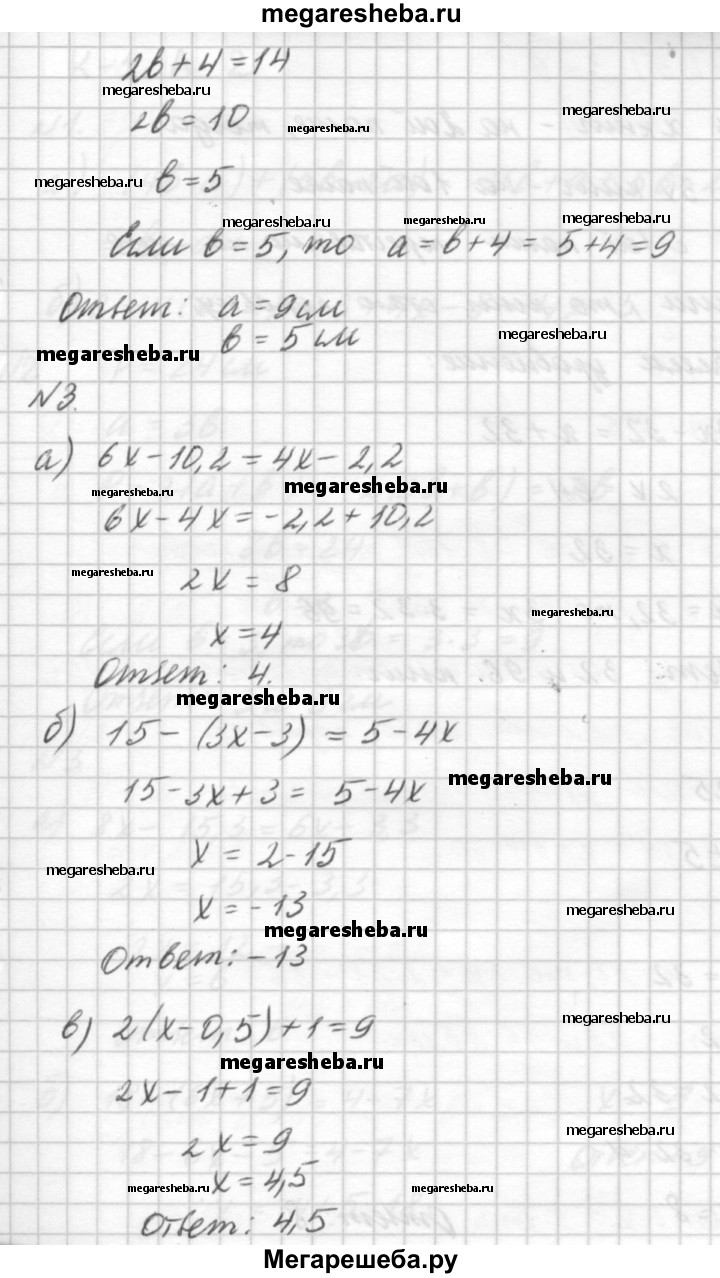 megaresheba.ru
2b+4=14
megaresheba.ru
megaresheba.ru
2b=10
megaresheba.ru
megaresheba.ru
b=5
megaresheba.ru
megaresheba.ru
megaresheba.ru
Если b=5, то a=b+4=5+4=9
Ответ: a=9см
b=5см
megaresheba.ru
megaresheba.ru
№3.
а) 6x-10,2=4x-2,2
megaresheba.ru
megaresheba.ru
6x-4x=-2,2+10,2
megaresheba.ru
2x=8
megaresheba.ru
x=4
Ответ: 4.
megaresheba.ru
б) 15-(3x-3)=5-4x
megaresheba.ru
15-3x+3=5-4x
x=2-15
megaresheba.ru
x=-13
megaresheba.ru
megaresheba.ru
Ответ: -13
в) 2(x-0,5)+1=9
megaresheba.ru
megaresheba.ru
2x-1+1=9
megaresheba.ru
2x=9
x=4,5
megaresheba.ru
megaresheba.ru
Ответ: 4,5
Мегарешеба.ру